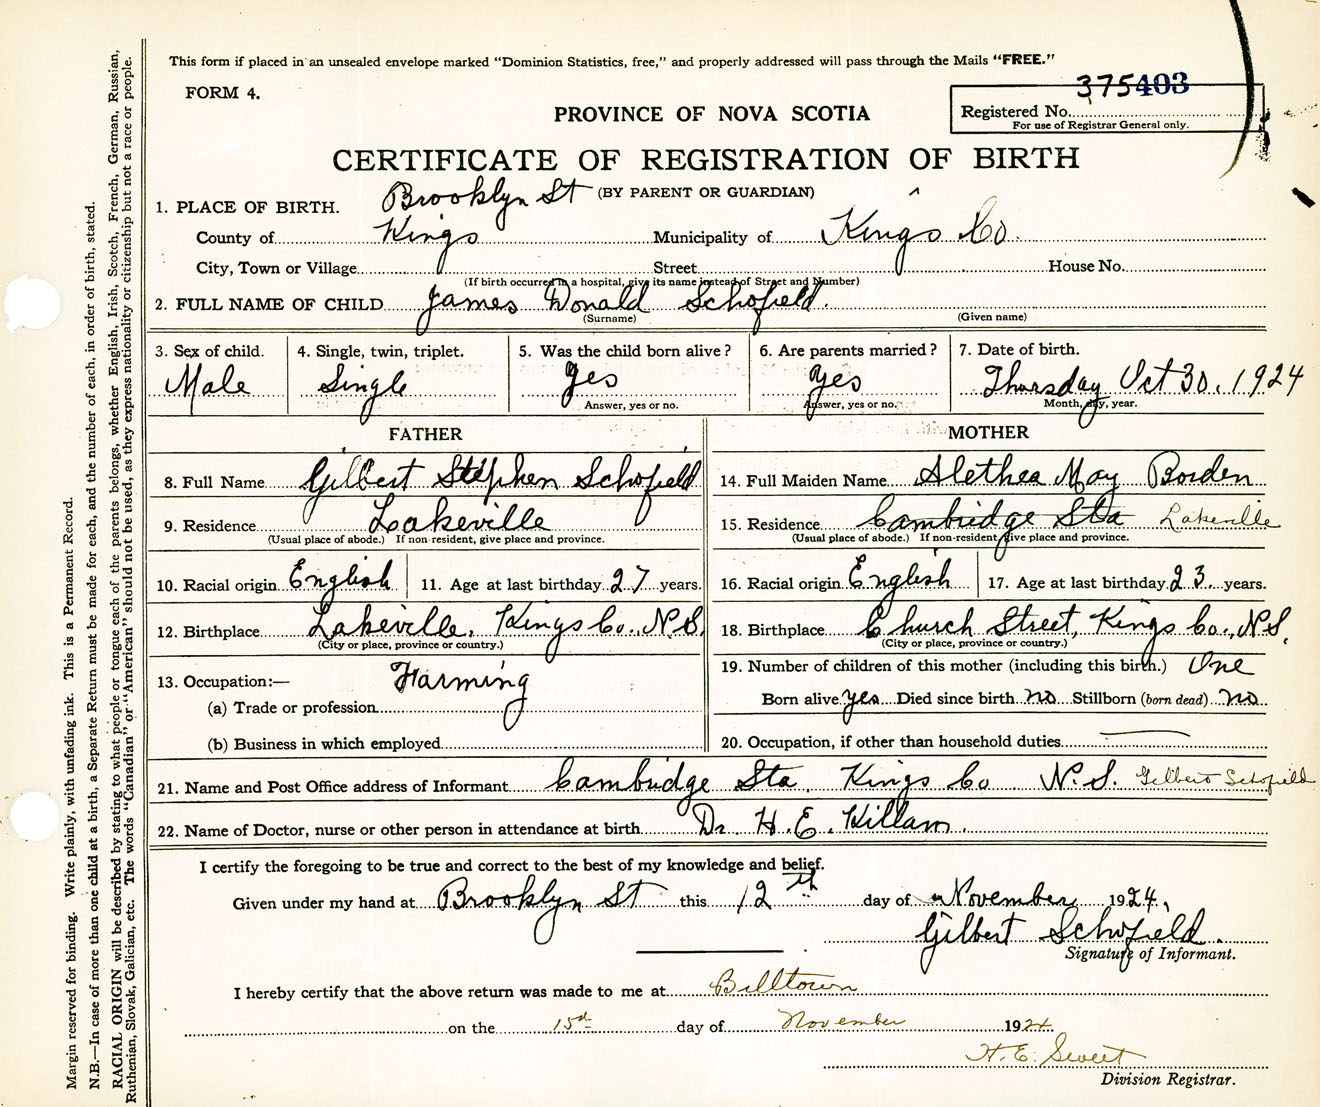 This form if placed in an unsealed envelope marked "Dominion Statistics, free," and properly addressed will pass through the Mails "FREE."
FORM 4.
375403
PROVINCE OF NOVA SCOTIA
Registered No.
For use of Registrar General only.
CERTIFICATE OF REGISTRATION OF BIRTH
(BY PARENT OR GUARDIAN)
1. PLACE OF BIRTH. Brooklyn St
County of Kings Municipality of Kings Co.
City, Town or Village Street House No.
(If birth occurred in a hospital, give its name instead of Street and Number)
2. FULL NAME OF CHILD James Donald Schofield.
(Surname) (Given name)
3. Sex of child. 4. Single, twin, triplet. 5. Was the child born alive? 6. Are parents married? 7. Date of birth.
Male Single Yes Yes Thursday Oct 30. 1924
Answer, yes or no. Answer, yes or no. Month, day, year.
FATHER MOTHER
8. Full Name Gilbert Stephen Schofield 14. Full Maiden Name Alethea May Borden
9. Residence Lakeville 15. Residence Cambridge Sta Lakeville
(Usual place of abode.) If non-resident, give place and province. (Usual place of abode.) If non-resident, give place and province.
10. Racial origin English 11. Age at last birthday 27 years. 16. Racial origin English 17. Age at last birthday 23 years.
12. Birthplace Lakeville, Kings Co., N.S. 18. Birthplace Church Street, Kings Co., N.S.
(City or place, province or country.) (City or place, province or country.)
13. Occupation:— Farming 19. Number of children of this mother (including this birth.) One
(a) Trade or profession Born alive yes Died since birth no Stillborn (born dead) no
(b) Business in which employed 20. Occupation, if other than household duties
21. Name and Post Office address of Informant Cambridge Sta. Kings Co N.S. Gilbert Schofield
22. Name of Doctor, nurse or other person in attendance at birth Dr. H. E. Killam.
I certify the foregoing to be true and correct to the best of my knowledge and belief.
Given under my hand at Brooklyn St this 12th day of November 1924,
Gilbert Schofield.
Signature of Informant.
I hereby certify that the above return was made to me at Billtown
on the 15th day of November 1924.
H. E. Sweet
Division Registrar.
Margin reserved for binding. Write plainly, with unfading ink. This is a Permanent Record.
N.B.—In case of more than one child at a birth, a Separate Return must be made for each, and the number of each, in order of birth, stated.
RACIAL ORIGIN will be described by stating to what people or tongue each of the parents belongs, whether English, Irish, Scotch, French, German, Russian,
Ruthenian, Slovak, Galician, etc. The words "Canadian" or "American" should not be used, as they express nationality or citizenship but not a race or people.